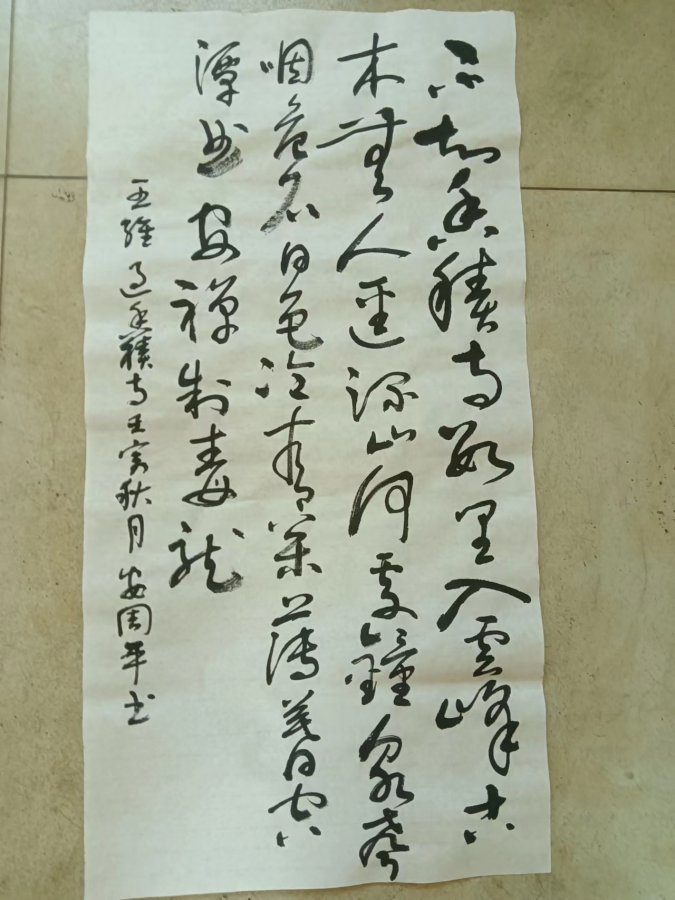 不知香積寺數里入雲峰古
木無人逕深山何處鐘泉聲
咽危石日色冷青松薄暮空
潭曲安禪制毒龍
王維過香積寺壬寅秋月安周平书